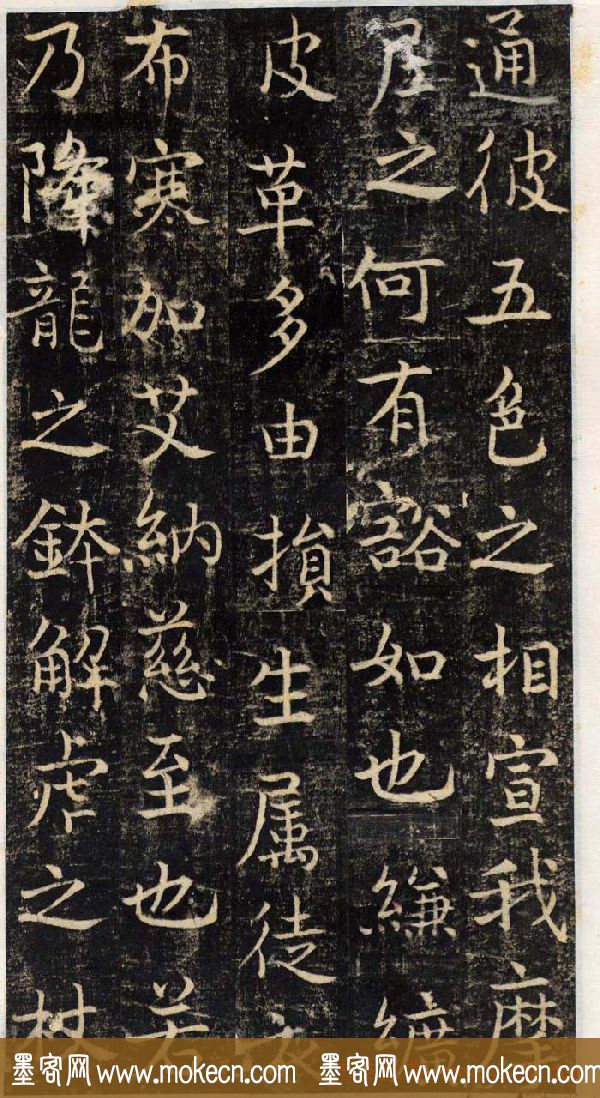 通彼五色之相宣我
居之何有豁如也縑纊
皮革多由損生属徒衣
布寒加艾納慈至也若
乃降龍之鉢解虎之杖
墨客网 www.mokecn.com 墨客网 www.mokecn.com